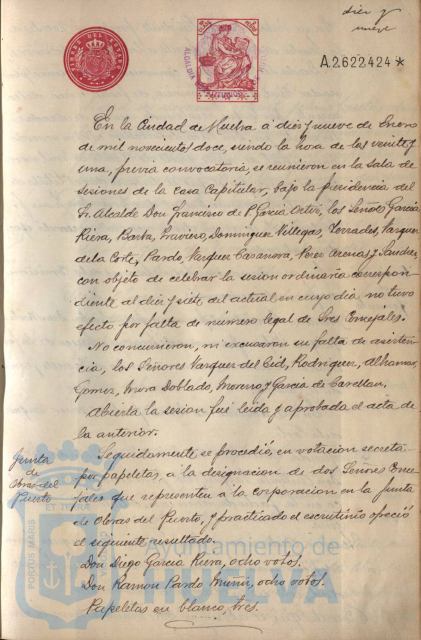 diez y
nueve
A.2622424*
En la Ciudad de Huelva a diez y nueve de Enero
de mil novecientos doce, siendo la hora de las veinte y
una, previa convocatoria, se reunieron en la sala de
sesiones de la casa Capitular, bajo la presidencia del
Sr. Alcalde Don Francisco de P. Garcia Ortiz, los Señores Garcia
Riera, Barba, Traviero, Dominguez Villegas, Terrades, Vazquez
de la Corte, Pardo, Vazquez Casanova, Perez Arenas y
con objeto de celebrar la sesion ordinaria correspon-
diente al dia y siete del actual en cuyo dia no tuvo
efecto por falta de número legal de Sres Concejales.
No concurrieron, ni excusaron su falta de asisten-
cia, los Señores Vazquez del Cid, Rodriguez, Alhamar,
Gomez, Mora Doblado, Moreno y Garcia de Castellan.
Abierta la sesion fué leida y aprobada el acta de
la anterior.
Junta
de
Obras del
Puerto
Seguidamente se procedió, en votacion secreta
por papeletas, a la designacion de dos Señores Conce-
jales que representen a la corporacion en la Junta
de Obras del Puerto, y practicado el escrutinio ofreció
el siguiente resultado.
Don Diego Garcia Riera, ocho votos.
Don Ramon Pardo Muñiz, ocho votos.
Papeletas en blanco, tres.
Ayuntamiento de
HUELVA
PORTUS MARIS
ET TERRAE